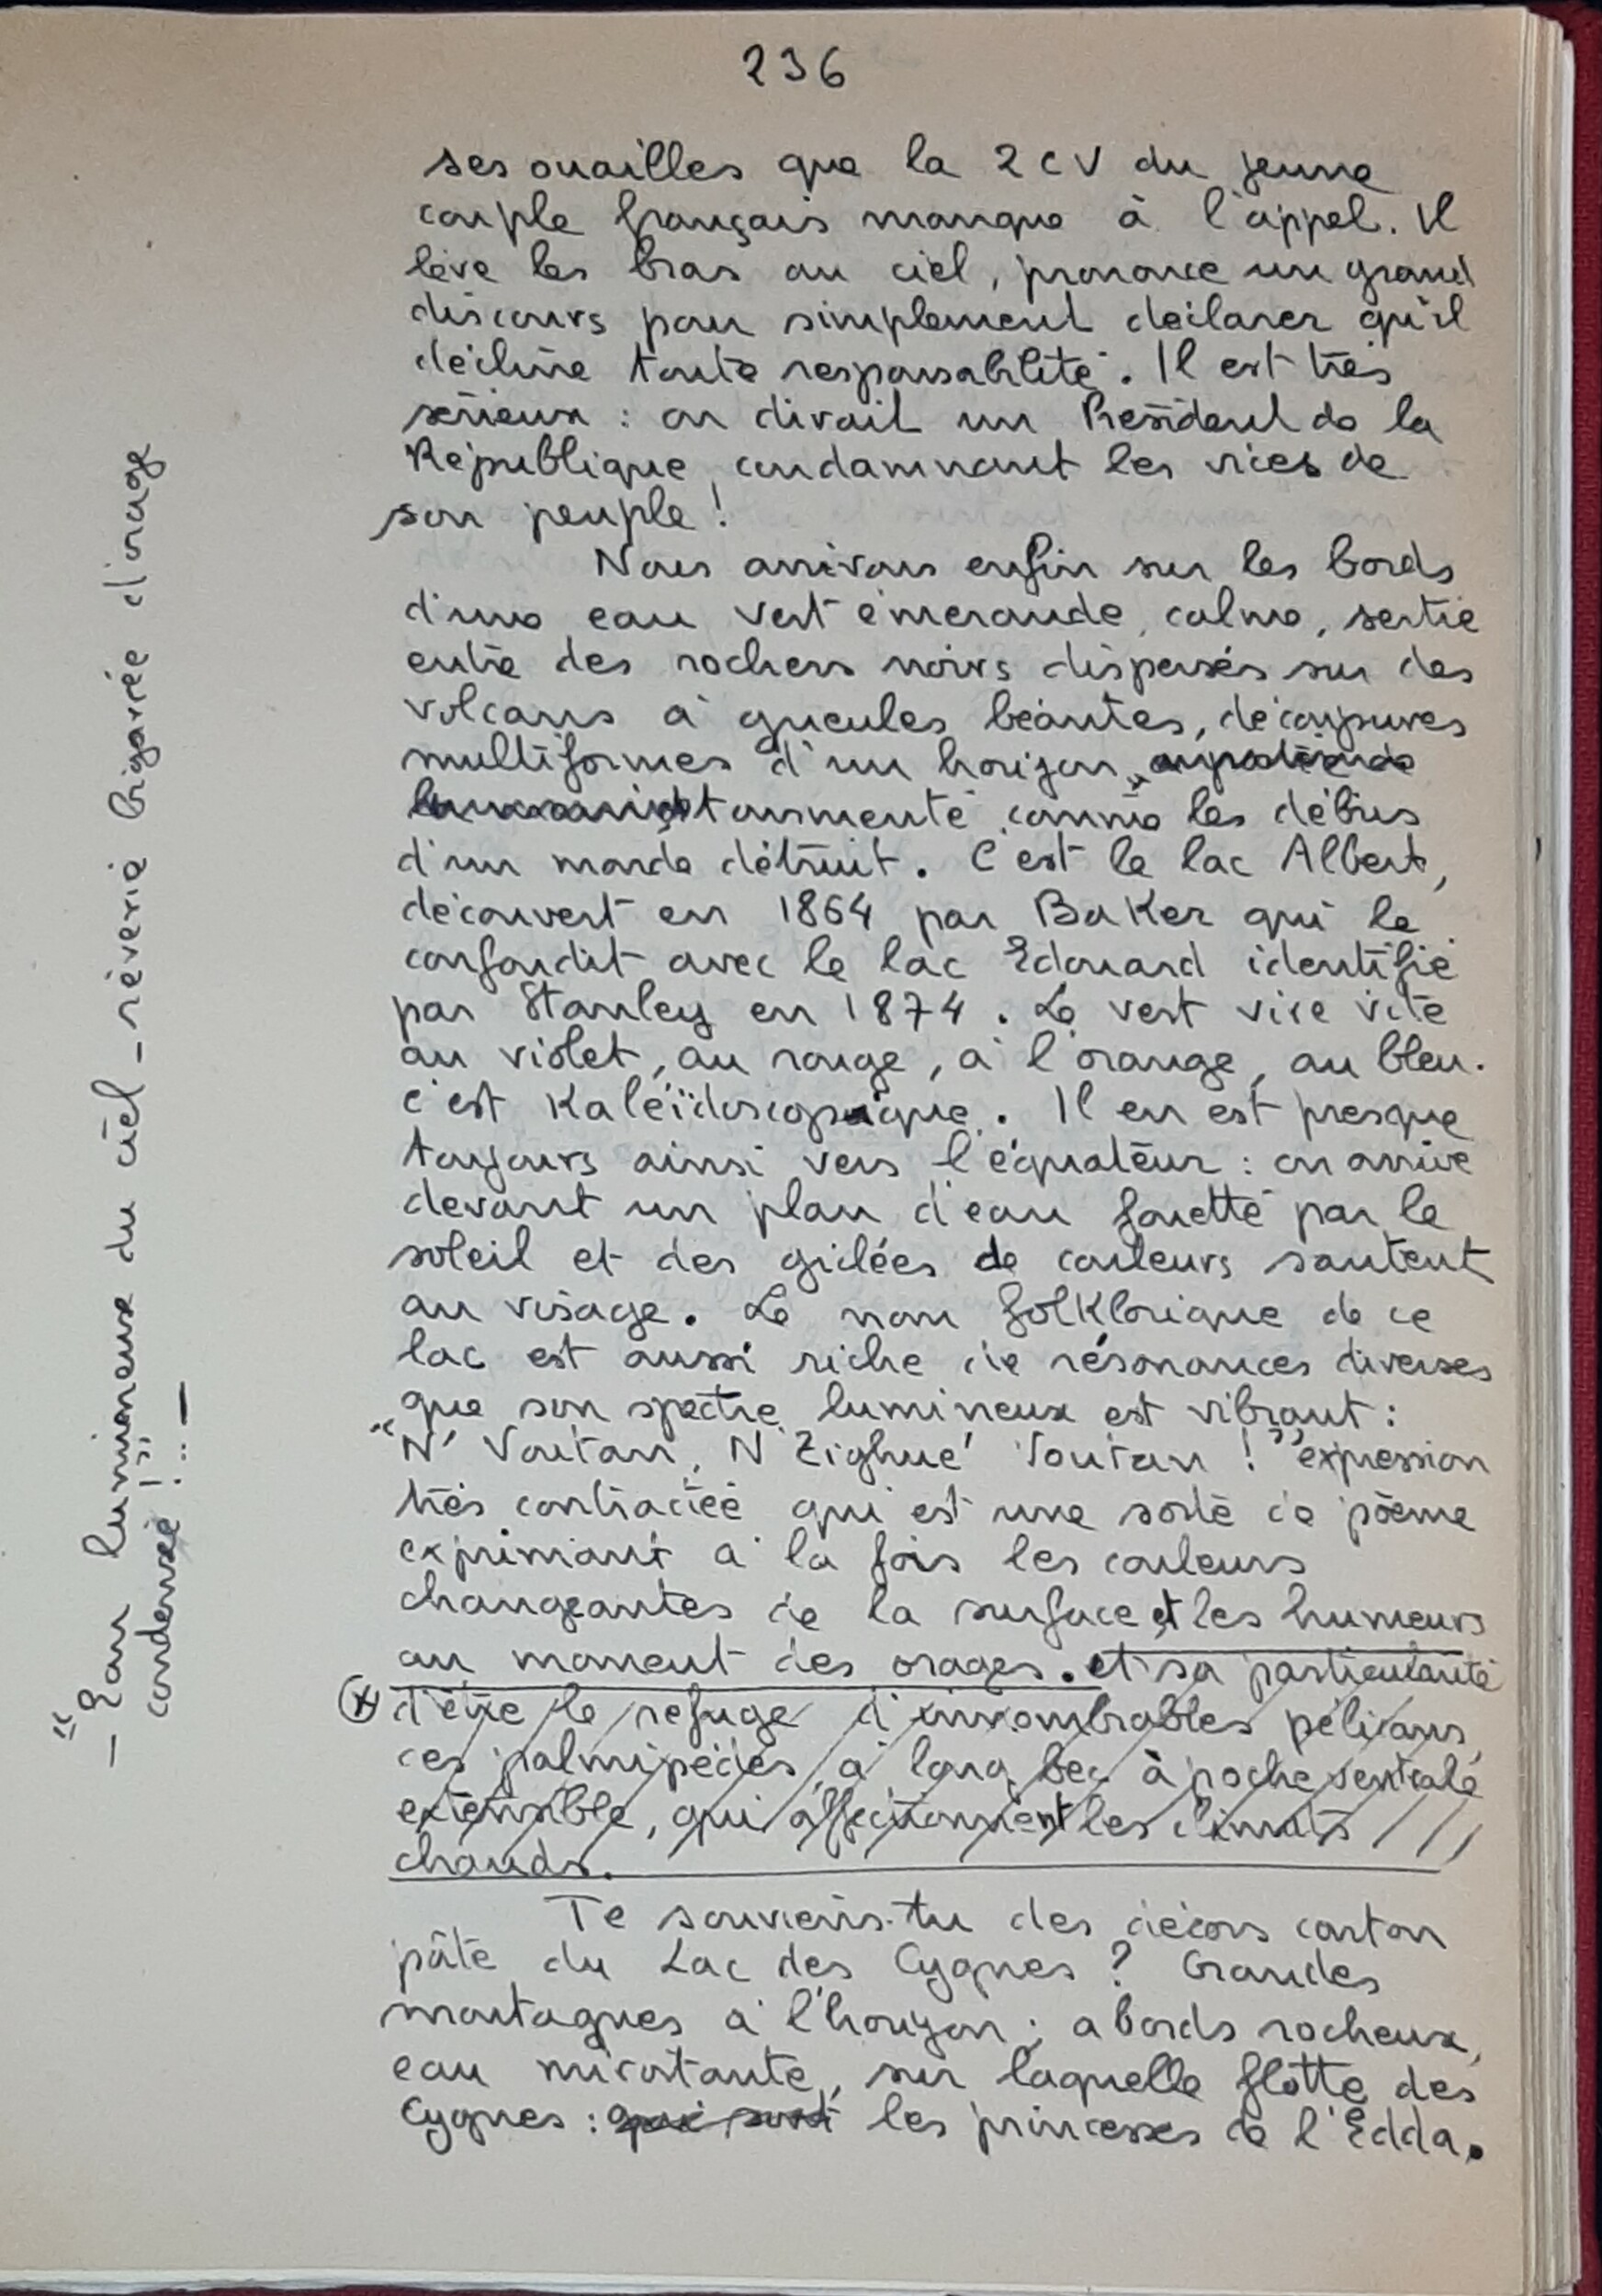 236
ses ouailles que la 2 CV du jeune
couple français manque à l'appel. Il
lève les bras au ciel, prononce un grand
discours pour simplement déclarer qu'il
décline toute responsabilité. Il est très
sérieux : on dirait un Président de la
République condamnant les vices de
son peuple !
Nous arrivons enfin sur les bords
d'une eau vert émeraude, calme, sertie
entre des rochers noirs dispersés sur des
volcans à gueules béantes, découpures
multiformes d'un horizon
tourmenté comme les débris
d'un monde détruit. C'est le lac Albert,
découvert en 1864 par Baker qui le
confondit avec le lac Edouard identifié
par Stanley en 1874. Le vert vire vite
au violet, au rouge, à l'orange, au bleu.
c'est Kaléïdoscopique. Il en est presque
toujours ainsi vers l'équateur : on arrive
devant un plan d'eau fouetté par le
soleil et des giclées de couleurs sautent
au visage. Le nom folKlorique de ce
lac est aussi riche de résonances diverses
que son spectre lumineux est vibrant :
"N' Voutan, N'Zighué Voutan !" expression
très contractée qui est une sorte de poème
exprimant à la fois les couleurs
changeantes de la surface et les humeurs
au moment des orages. et sa particularité
d'être le refuge d'innombrables pélicans,
ces palmipèdes à long bec à poche ventrale
extensible, qui affectionnent les climats
chauds.
Te souviens-tu des décors carton
pâte du Lac des Cygnes ? Grandes
montagnes à l'horizon ; abords rocheux,
eau miroitante, sur laquelle flotte des
Cygnes : qui sont les princesses de l'Edda.
"- Eau lumineuse du ciel - rêverie bigarrée d'orage
condensé !" -